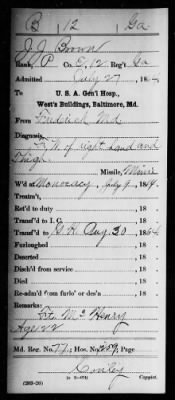 B | 12 | Ga
J. J. Brown
Rank, P Co. E, 12 Reg't Ga
Admitted July 27, 186
To U. S. A. Gen'l Hosp.,
West's Buildings, Baltimore, Md.
From Fredrick Md
Diagnosis,
W. of right hand and
Thigh
Missile, Minie
W'd at Monocacy July 9, 1864.
Treatm't,
Ret'd to duty , 18 .
Transf'd to I. C. , 18 .
Transf'd to G. H. Aug 30, 1864
Furloughed , 18 .
Deserted , 18 .
Disch'd from service , 18 .
Died , 18 .
Re-adm'd from furlo' or des'n , 18 .
Remarks:
Ft McHenry
Age 22
Md. Reg. No. 77; Hos. No. 259; Page
(202-20) Copyist.